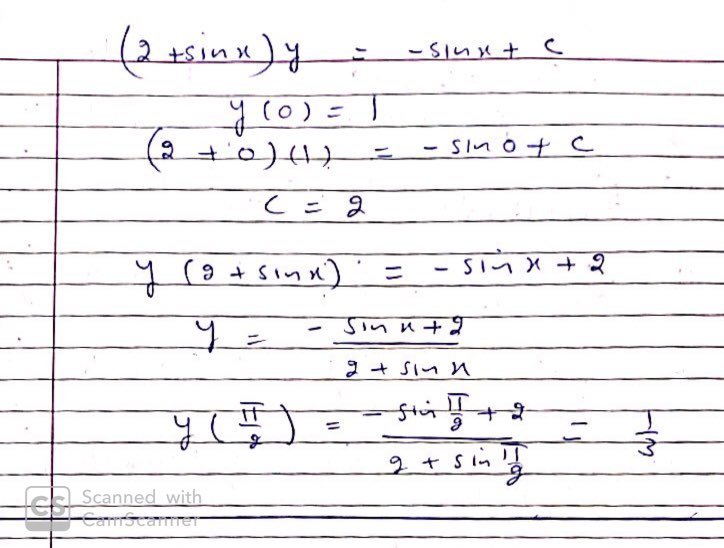 (2 + sin x) y = - sin x + c
y(0) = 1
(2 + 0)(1) = - sin 0 + c
c = 2
y (2 + sin x) = - sin x + 2
y = (- sin x + 2) / (2 + sin x)
y(π/2) = (- sin π/2 + 2) / (2 + sin π/2) = 1/3
CS Scanned with
CamScanner